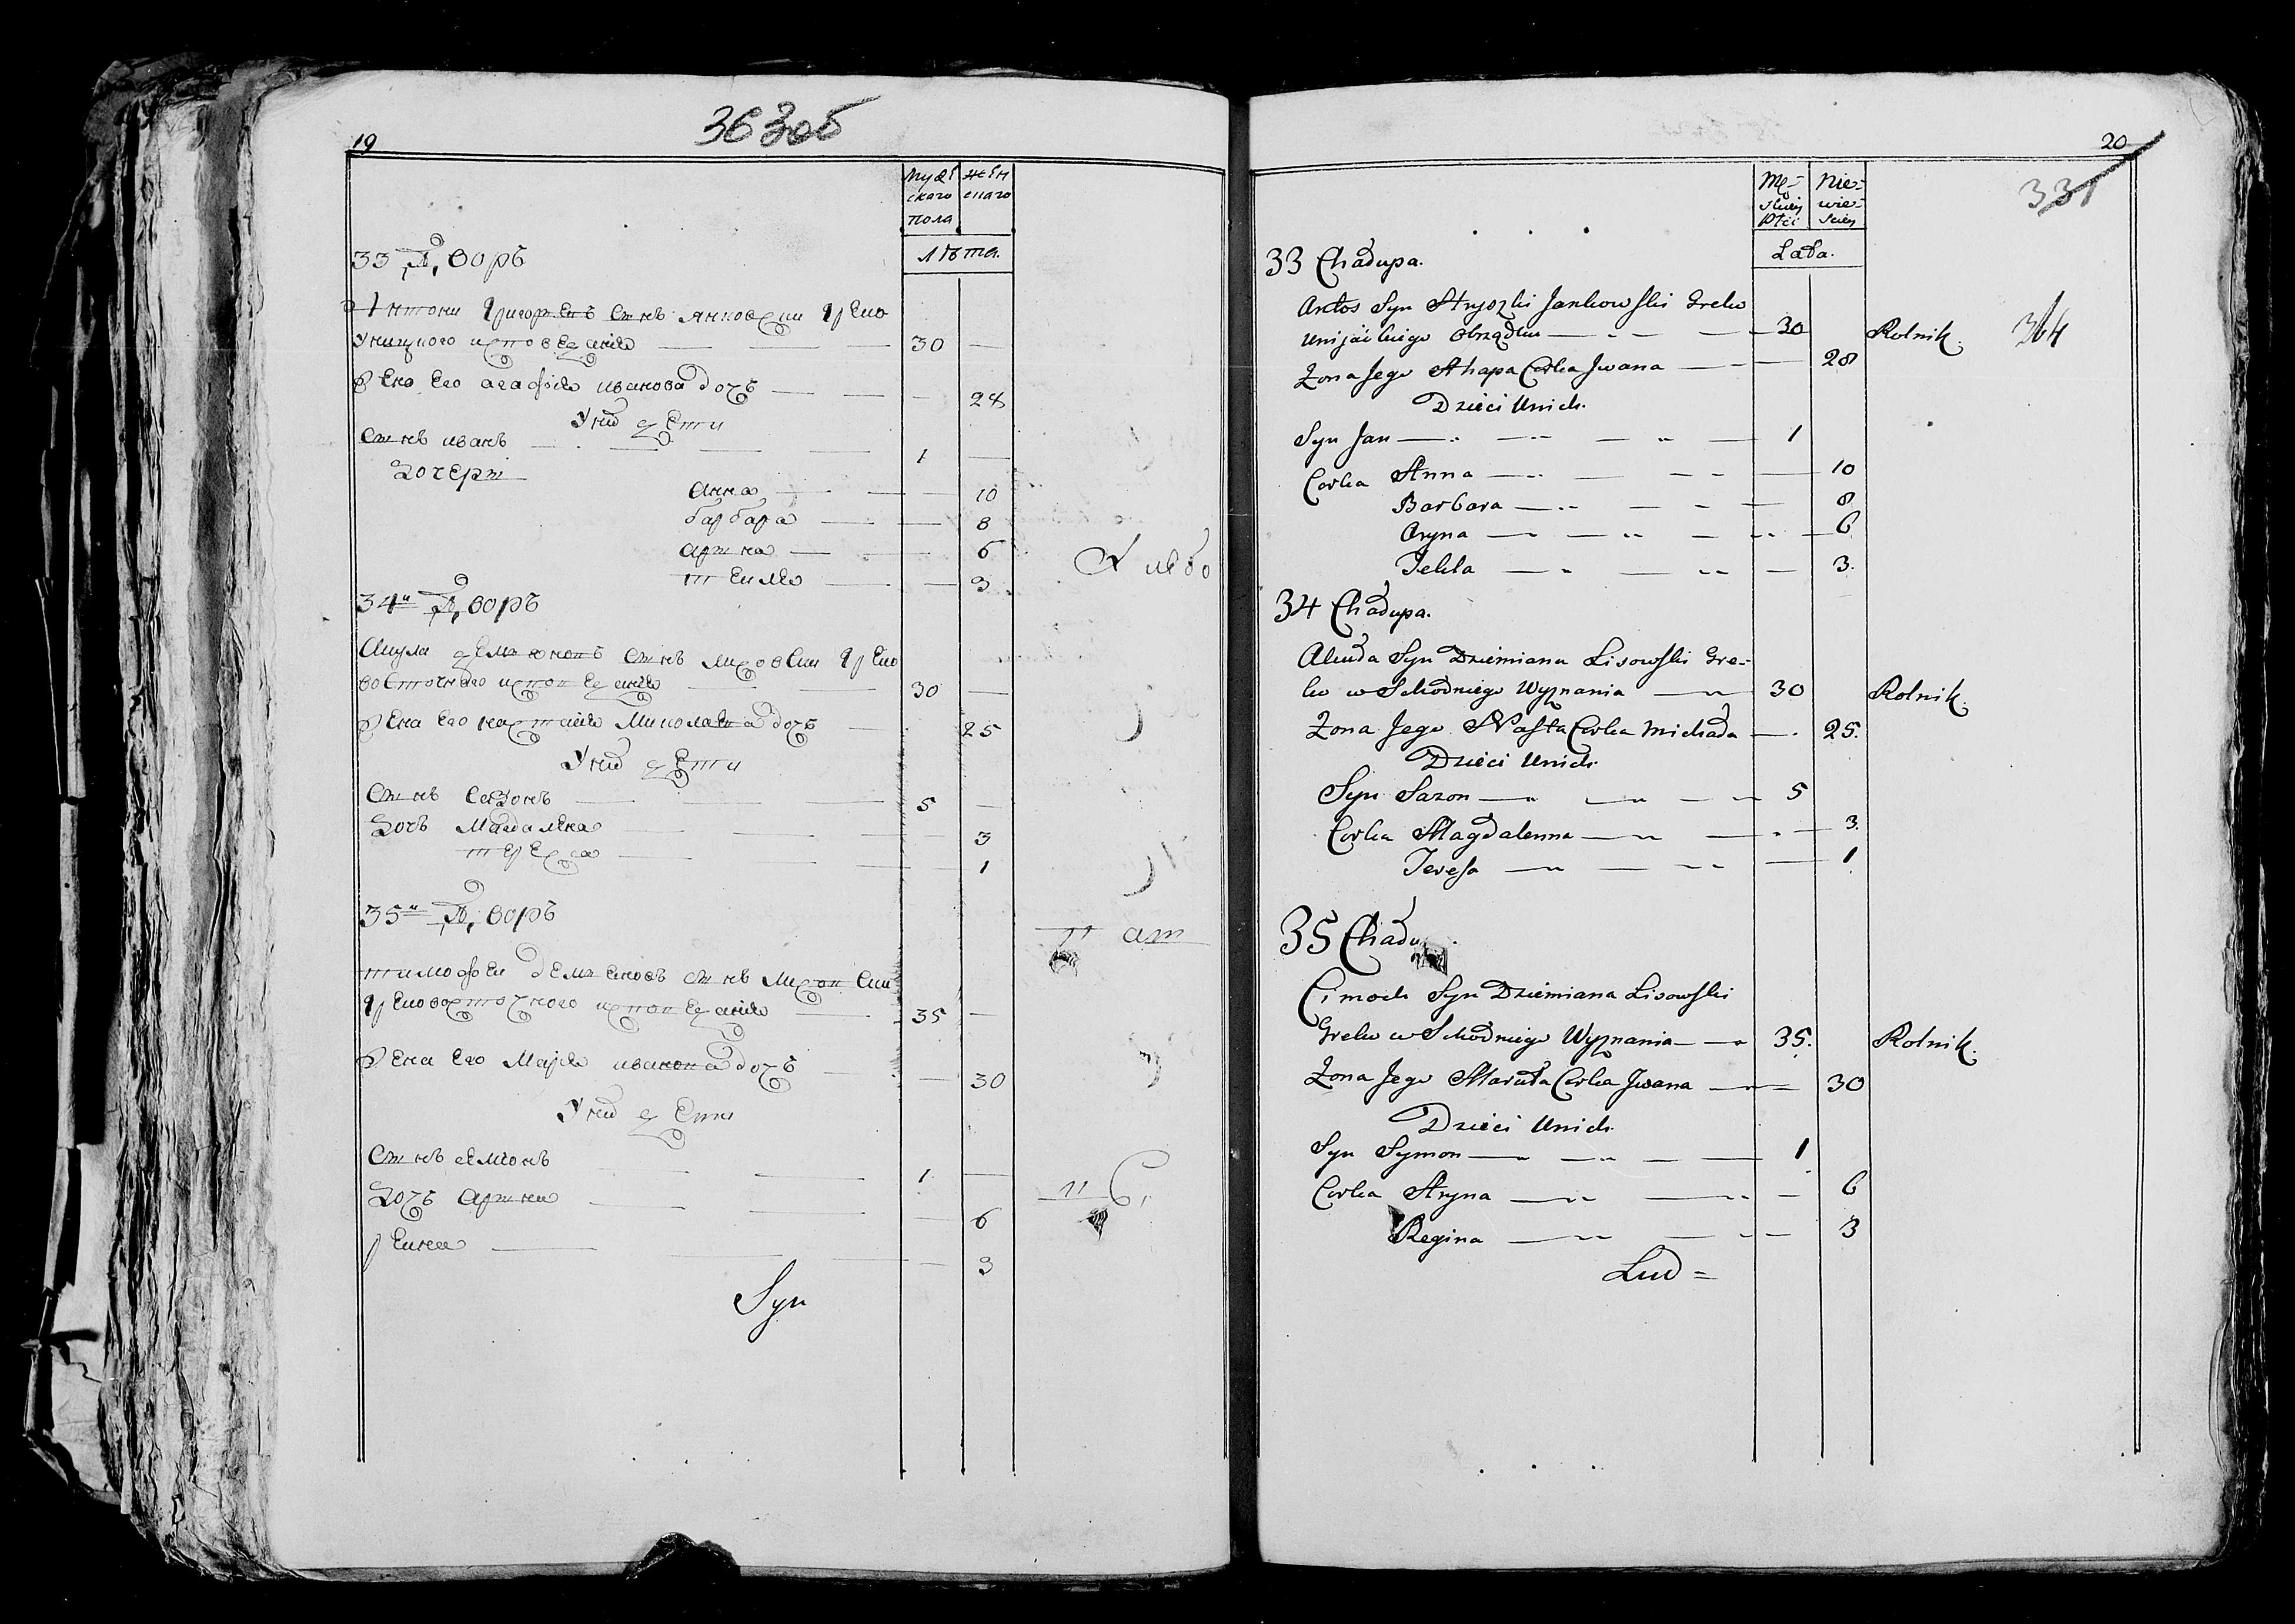 19
363 об
Мужескаго пола
женскаго
лѣта.
33 Дворъ
Антони Григорьевъ сынъ янковски Греко
Уницкого исповеданiя — 30 —
Жена Его агафiя иванова дочь — 28
У них дети
Сынъ иванъ — 1 —
Дочери
Анна — 10
барбара — 8
арына — 6
текля — 3
Хлебо
34й Дворъ
Сынъ
восточнаго исповеданiя — 30 —
Жена Его настасiя дочь — 25
У них дети
Сынъ Сазонъ — 5 —
Дочь Магдалена — 3
тереса — 1
35й Дворъ
тимофеи сынъ
Грековосточного исповеданiя — 35 —
Жена Его Марiя иванова дочь — 30
У них дети
Сынъ семіонъ — 1 —
Дочь арына — 6
— 3
Syn
20
331
Mę-skiey Płci
Nie-wie-sciey
Lata.
33 Chałupa.
Antos Syn Hryszki Jankowski Greko
Unijackiego Obrządku — 30 Rolnik. 364
Zona Jego Ahapa Corka Jwana — 28
Dzieci Unich.
Syn Jan — 1
Corka Anna — 10
Barbara — 8
Oryna — 6
Tekla — 3.
34 Chałupa.
Syn Dziemiana Lisowski Gre-
ko wSchodniego Wyznania — 30 Rolnik.
Zona Jego Nasta Corka Michała — 25.
Dzieci Unich
Syn Sazon — 5
Corka Magdalenna — 3.
Teresa — 1
35 Chału
Cimoch Syn Dziemiana Lisowski
Greko wSchodniego Wyznania — 35. Rolnik.
Zona Jego Maruta Corka Jwana — 30
Dzieci Unich
Syn Symon — 1
Corka Aryna — 6
Regina — 3
Lud =